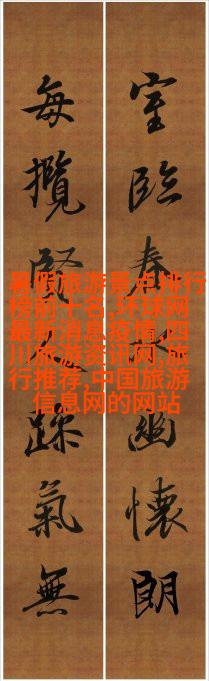 室臨春水幽懷朗
每攬賢躁氣無
暑假旅游景点排行
榜前十名,环球网
最新消息疫情,四
川旅游资讯网,旅
行推荐,中国旅游
信息网的网站